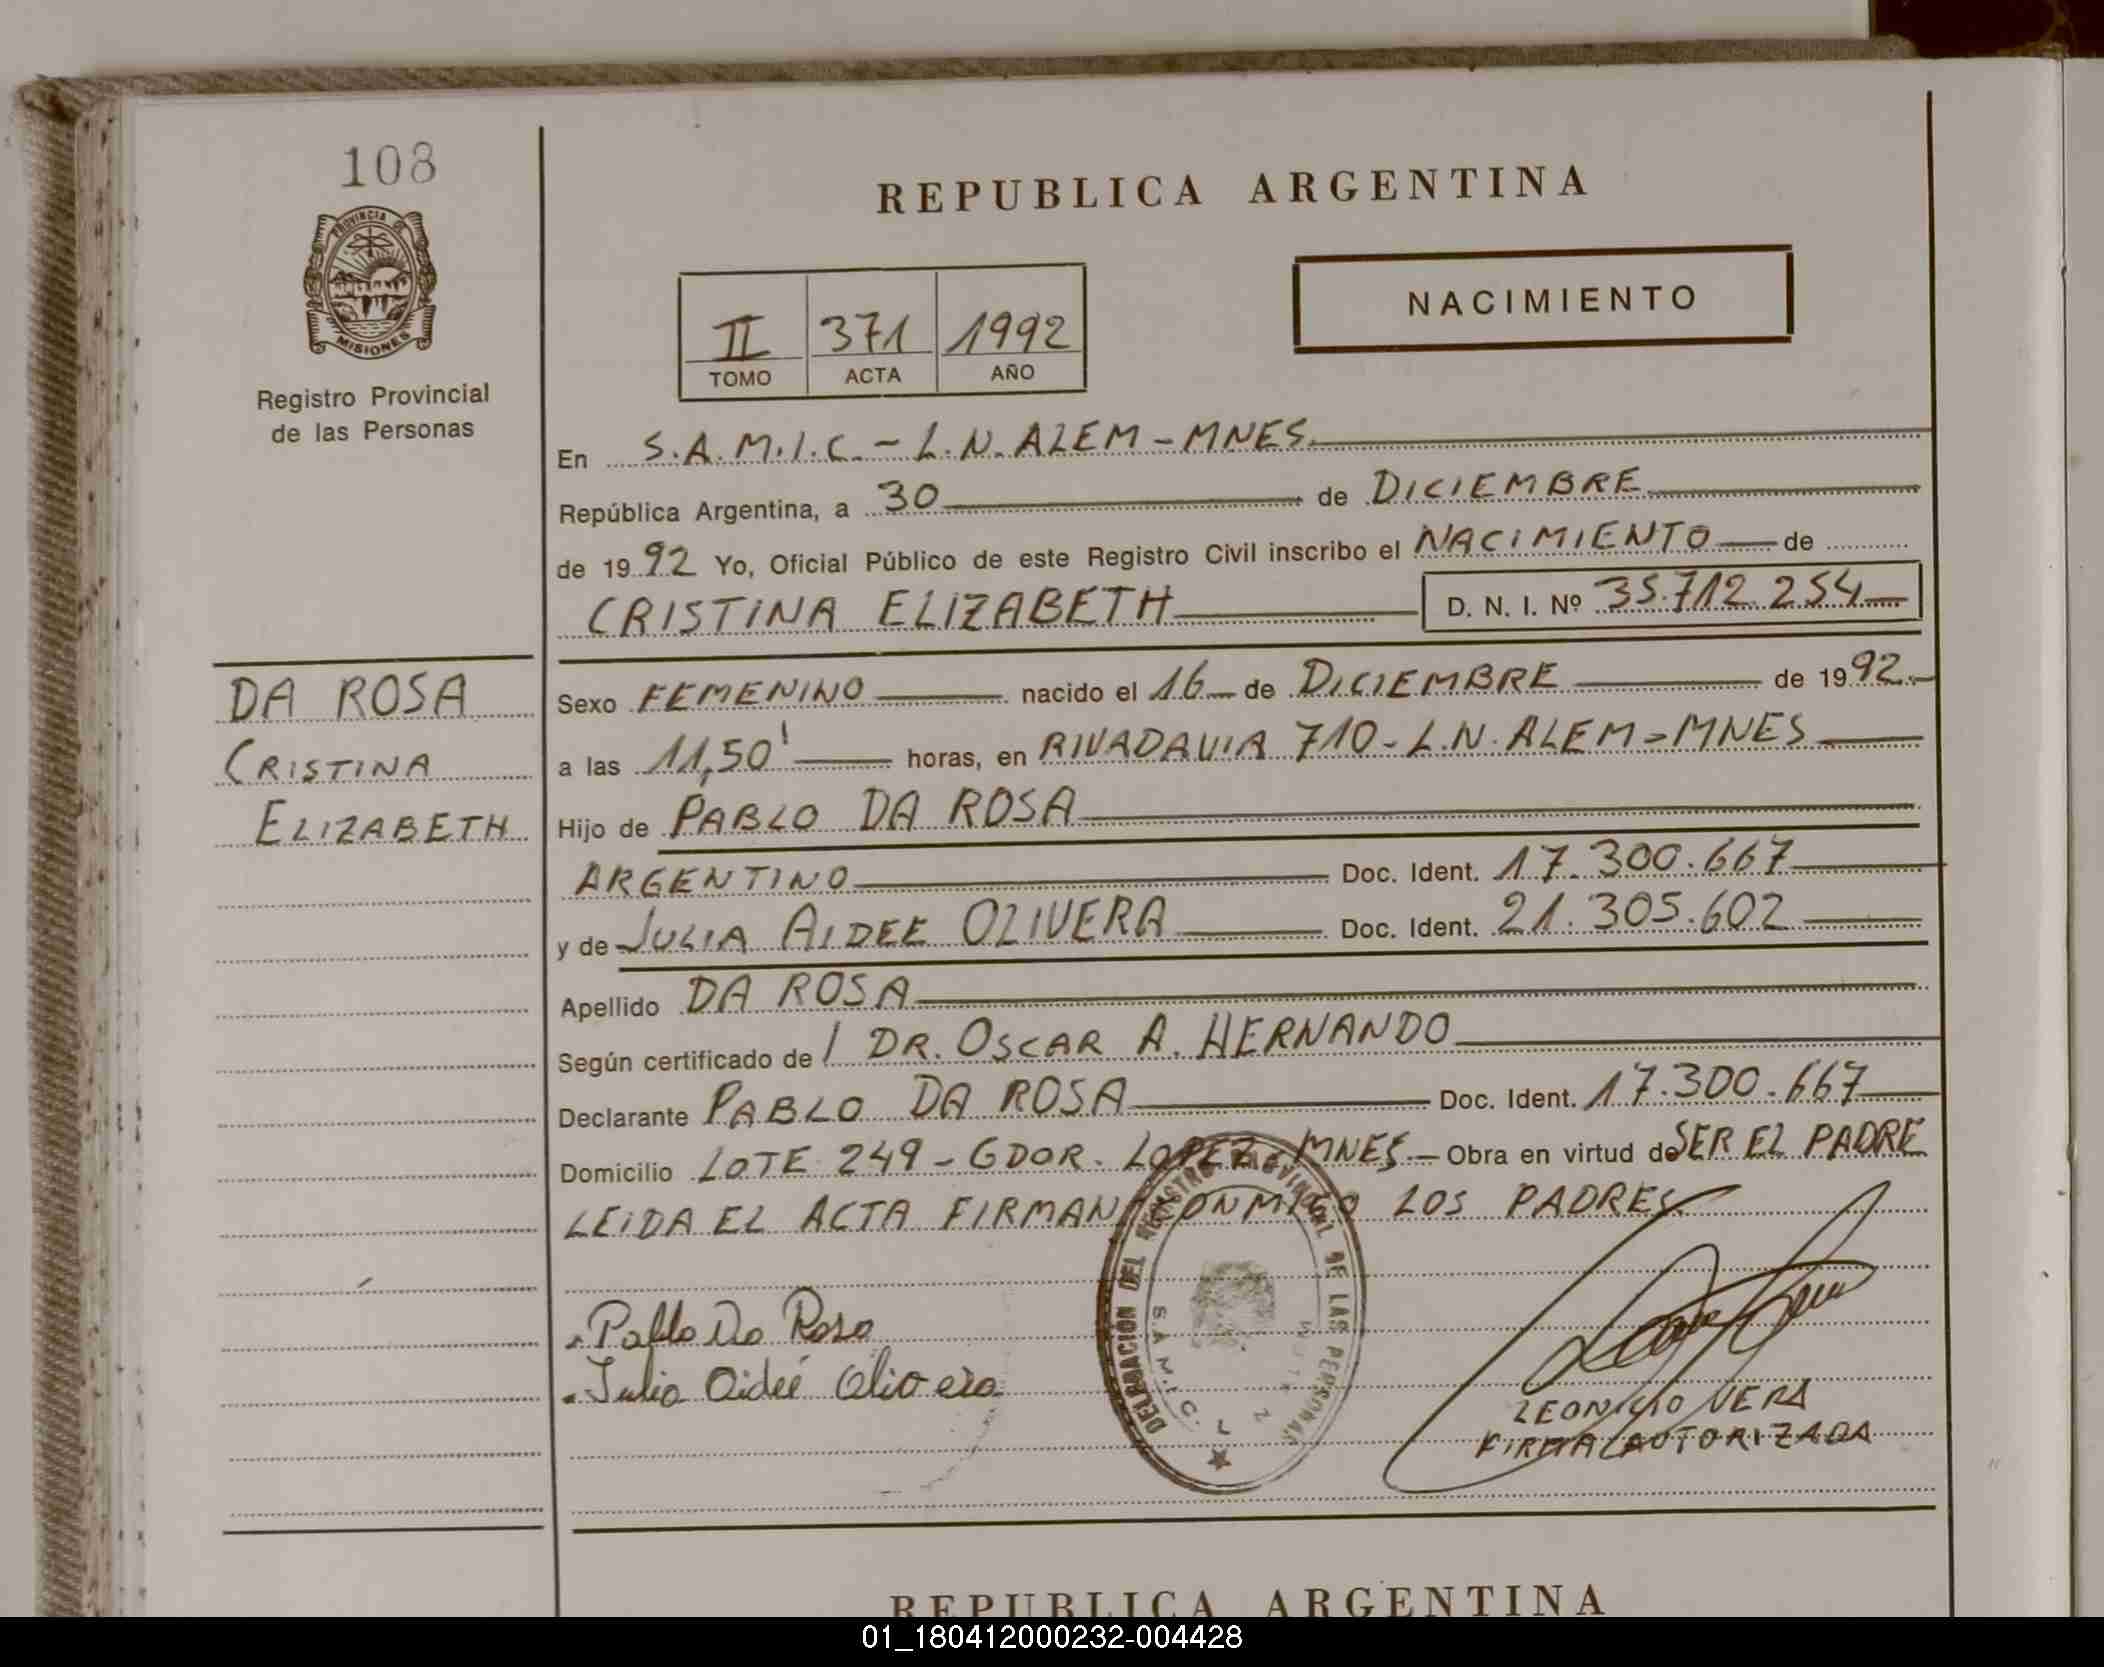 108
PROVINCIA DE
MISIONES
Registro Provincial
de las Personas
DA ROSA
CRISTINA
ELIZABETH
REPUBLICA ARGENTINA
II 371 1992
TOMO ACTA AÑO
NACIMIENTO
En S.A.M.I.C. - L.N. ALEM - MNES.
República Argentina, a 30 de DICIEMBRE
de 1992 Yo, Oficial Público de este Registro Civil inscribo el NACIMIENTO de
CRISTINA ELIZABETH D. N. I. Nº 35.712.254
Sexo FEMENINO nacido el 16 de DICIEMBRE de 1992
a las 11,50' horas, en RIVADAVIA 710 - L.N. ALEM - MNES
Hijo de PABLO DA ROSA
ARGENTINO Doc. Ident. 17.300.667
y de JULIA AIDEE OLIVERA Doc. Ident. 21.305.602
Apellido DA ROSA
Según certificado de / DR. OSCAR A. HERNANDO
Declarante PABLO DA ROSA Doc. Ident. 17.300.667
Domicilio LOTE 249 - GDOR. LOPEZ - MNES - Obra en virtud de SER EL PADRE
LEIDA EL ACTA FIRMAN CONMIGO LOS PADRES
Pablo Da Rosa
Julia Aideé Olivera
DELEGACION DEL REGISTRO PROVINCIAL DE LAS PERSONAS
S.A.M.I.C. L
LEONICIO VERA
FIRMA AUTORIZADA
REPUBLICA ARGENTINA
01_180412000232-004428